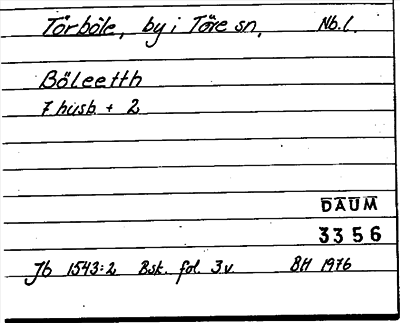 Törböle, by i Töre sn, Nb. l.
Böleetth
7 husb. + 2
DAUM
3356
Jb 1543:2 Bsk. fol. 3v. BH 1976